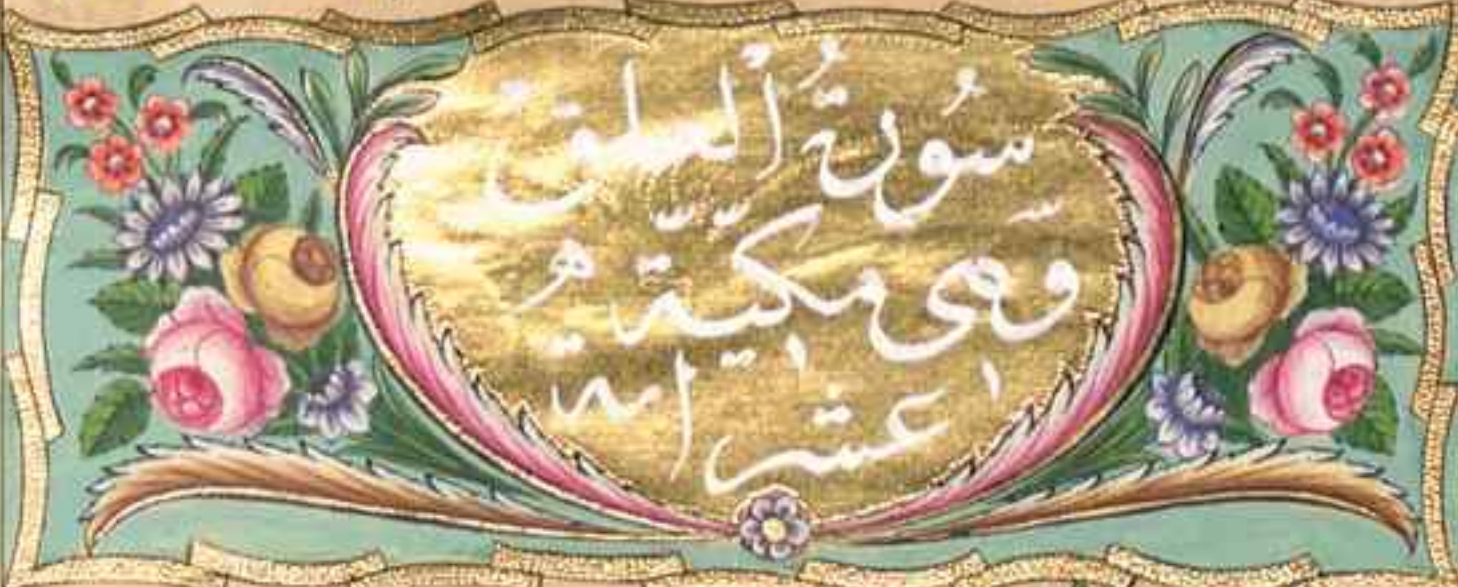 سُورَةُ العلق
وهى مكيّة
عشر اية